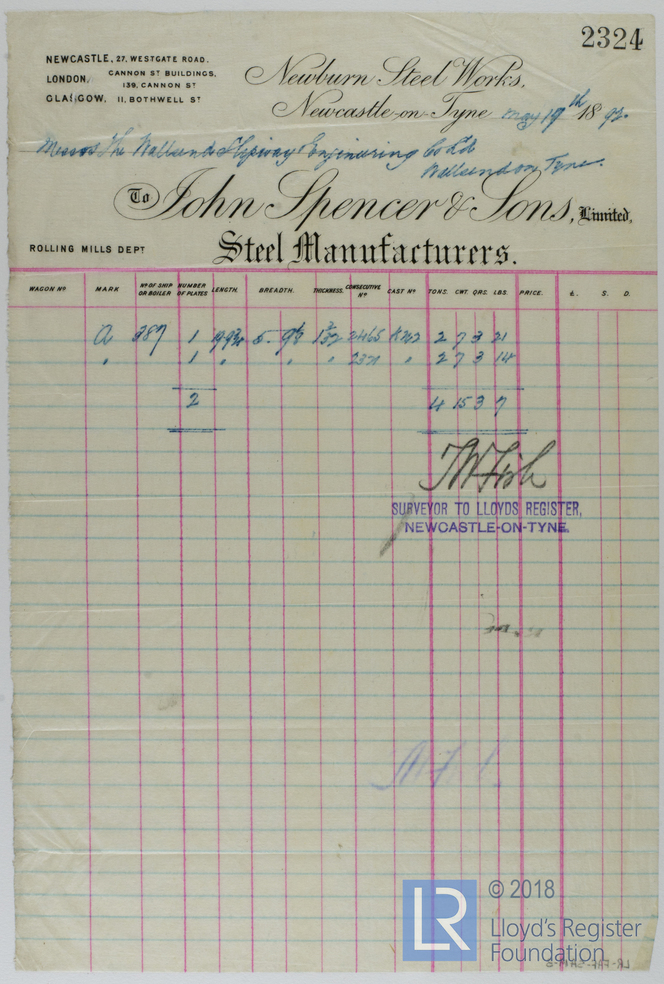 2324
NEWCASTLE, 27, WESTGATE ROAD.
LONDON, CANNON ST BUILDINGS,
139, CANNON ST
GLASGOW, 11, BOTHWELL ST
Newburn Steel Works,
Newcastle-on-Tyne May 19th 1892.
Messrs The Wallsend Slipway & Engineering Co Ld
Wallsend on Tyne.
To John Spencer & Sons, Limited,
ROLLING MILLS DEPT Steel Manufacturers.
WAGON No MARK No OF SHIP OR BOILER NUMBER OF PLATES LENGTH. BREADTH. THICKNESS. CONSECUTIVE No CAST No TONS. CWT. QRS. LBS. PRICE. £. S. D.
a 387 1 2 7 3 21
" 1 " " " " 2 7 3 14
2 4 15 3 7
TW Fish
SURVEYOR TO LLOYDS REGISTER,
NEWCASTLE-ON-TYNE.
LR © 2018
Lloyd's Register
Foundation